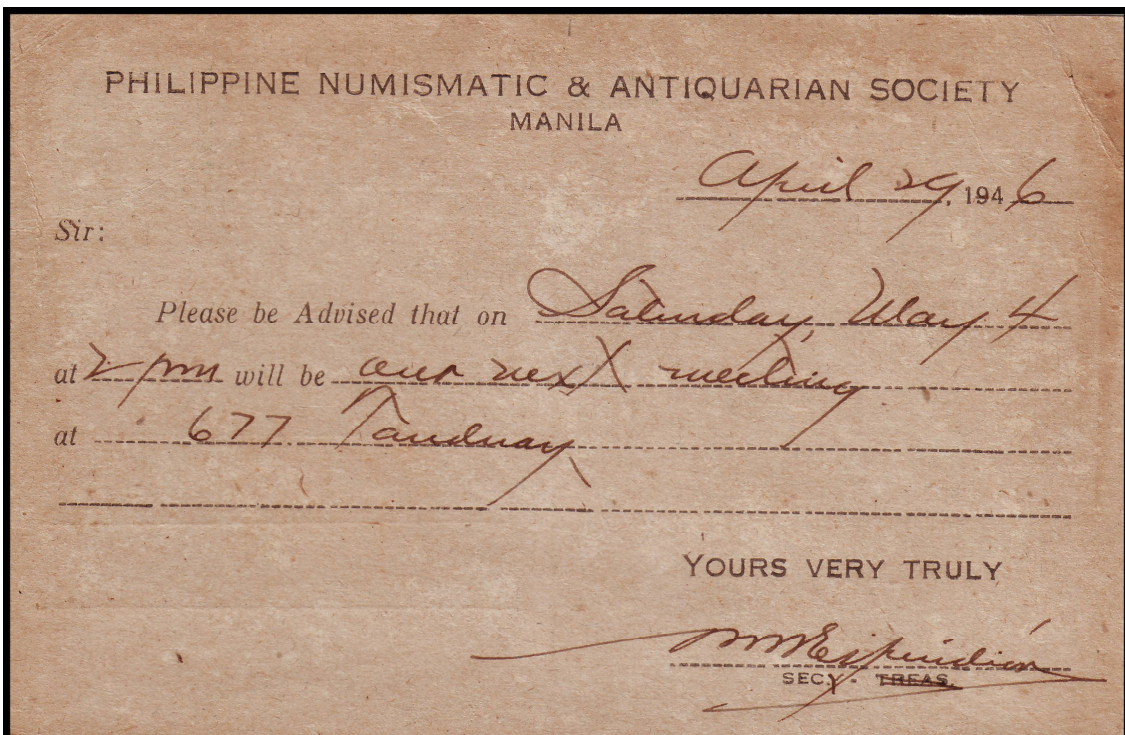 PHILIPPINE NUMISMATIC & ANTIQUARIAN SOCIETY
MANILA
April 29, 1946
Sir:
Please be Advised that on Saturday, May 4
at 2 pm will be our next meeting
at 677 Tanduay
YOURS VERY TRULY
SECY. - TREAS.